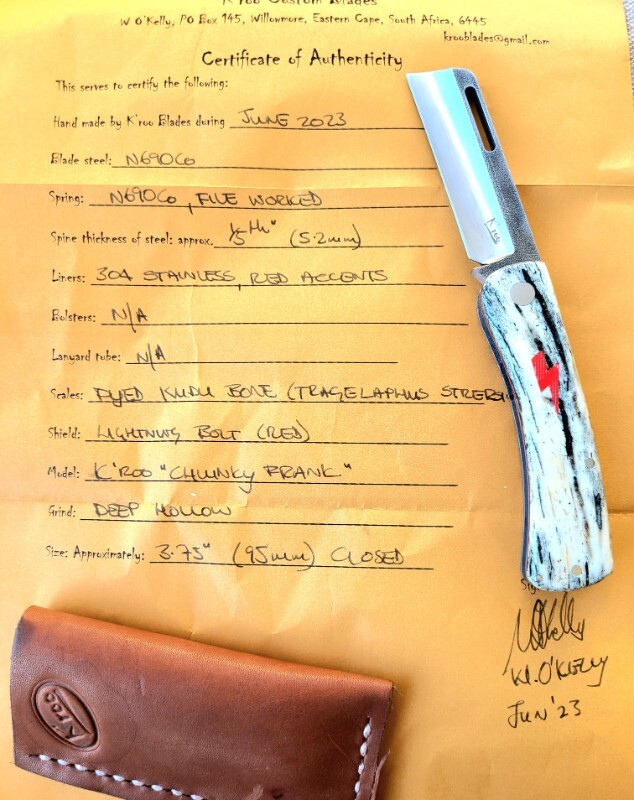 K'roo Custom Blades
W O'Kelly, PO Box 145, Willowmore, Eastern Cape, South Africa, 6445
krooblades@gmail.com
Certificate of Authenticity
This serves to certify the following:
Hand made by K'roo Blades during JUNE 2023
Blade steel: N690Co
Spring: N690Co, FILE WORKED
Spine thickness of steel: approx. 1/5th" (5.2mm)
Liners: 304 STAINLESS, RED ACCENTS
Bolsters: N/A
Lanyard tube: N/A
Scales: DYED KUDU BONE (TRAGELAPHUS STREPSI
Shield: LIGHTNING BOLT (RED)
Model: K'ROO "CHUNKY FRANK"
Grind: DEEP HOLLOW
Size: Approximately: 3.75" (95mm) CLOSED
K'roo
Sig
W.O'KELLY
JUN '23
K'roo